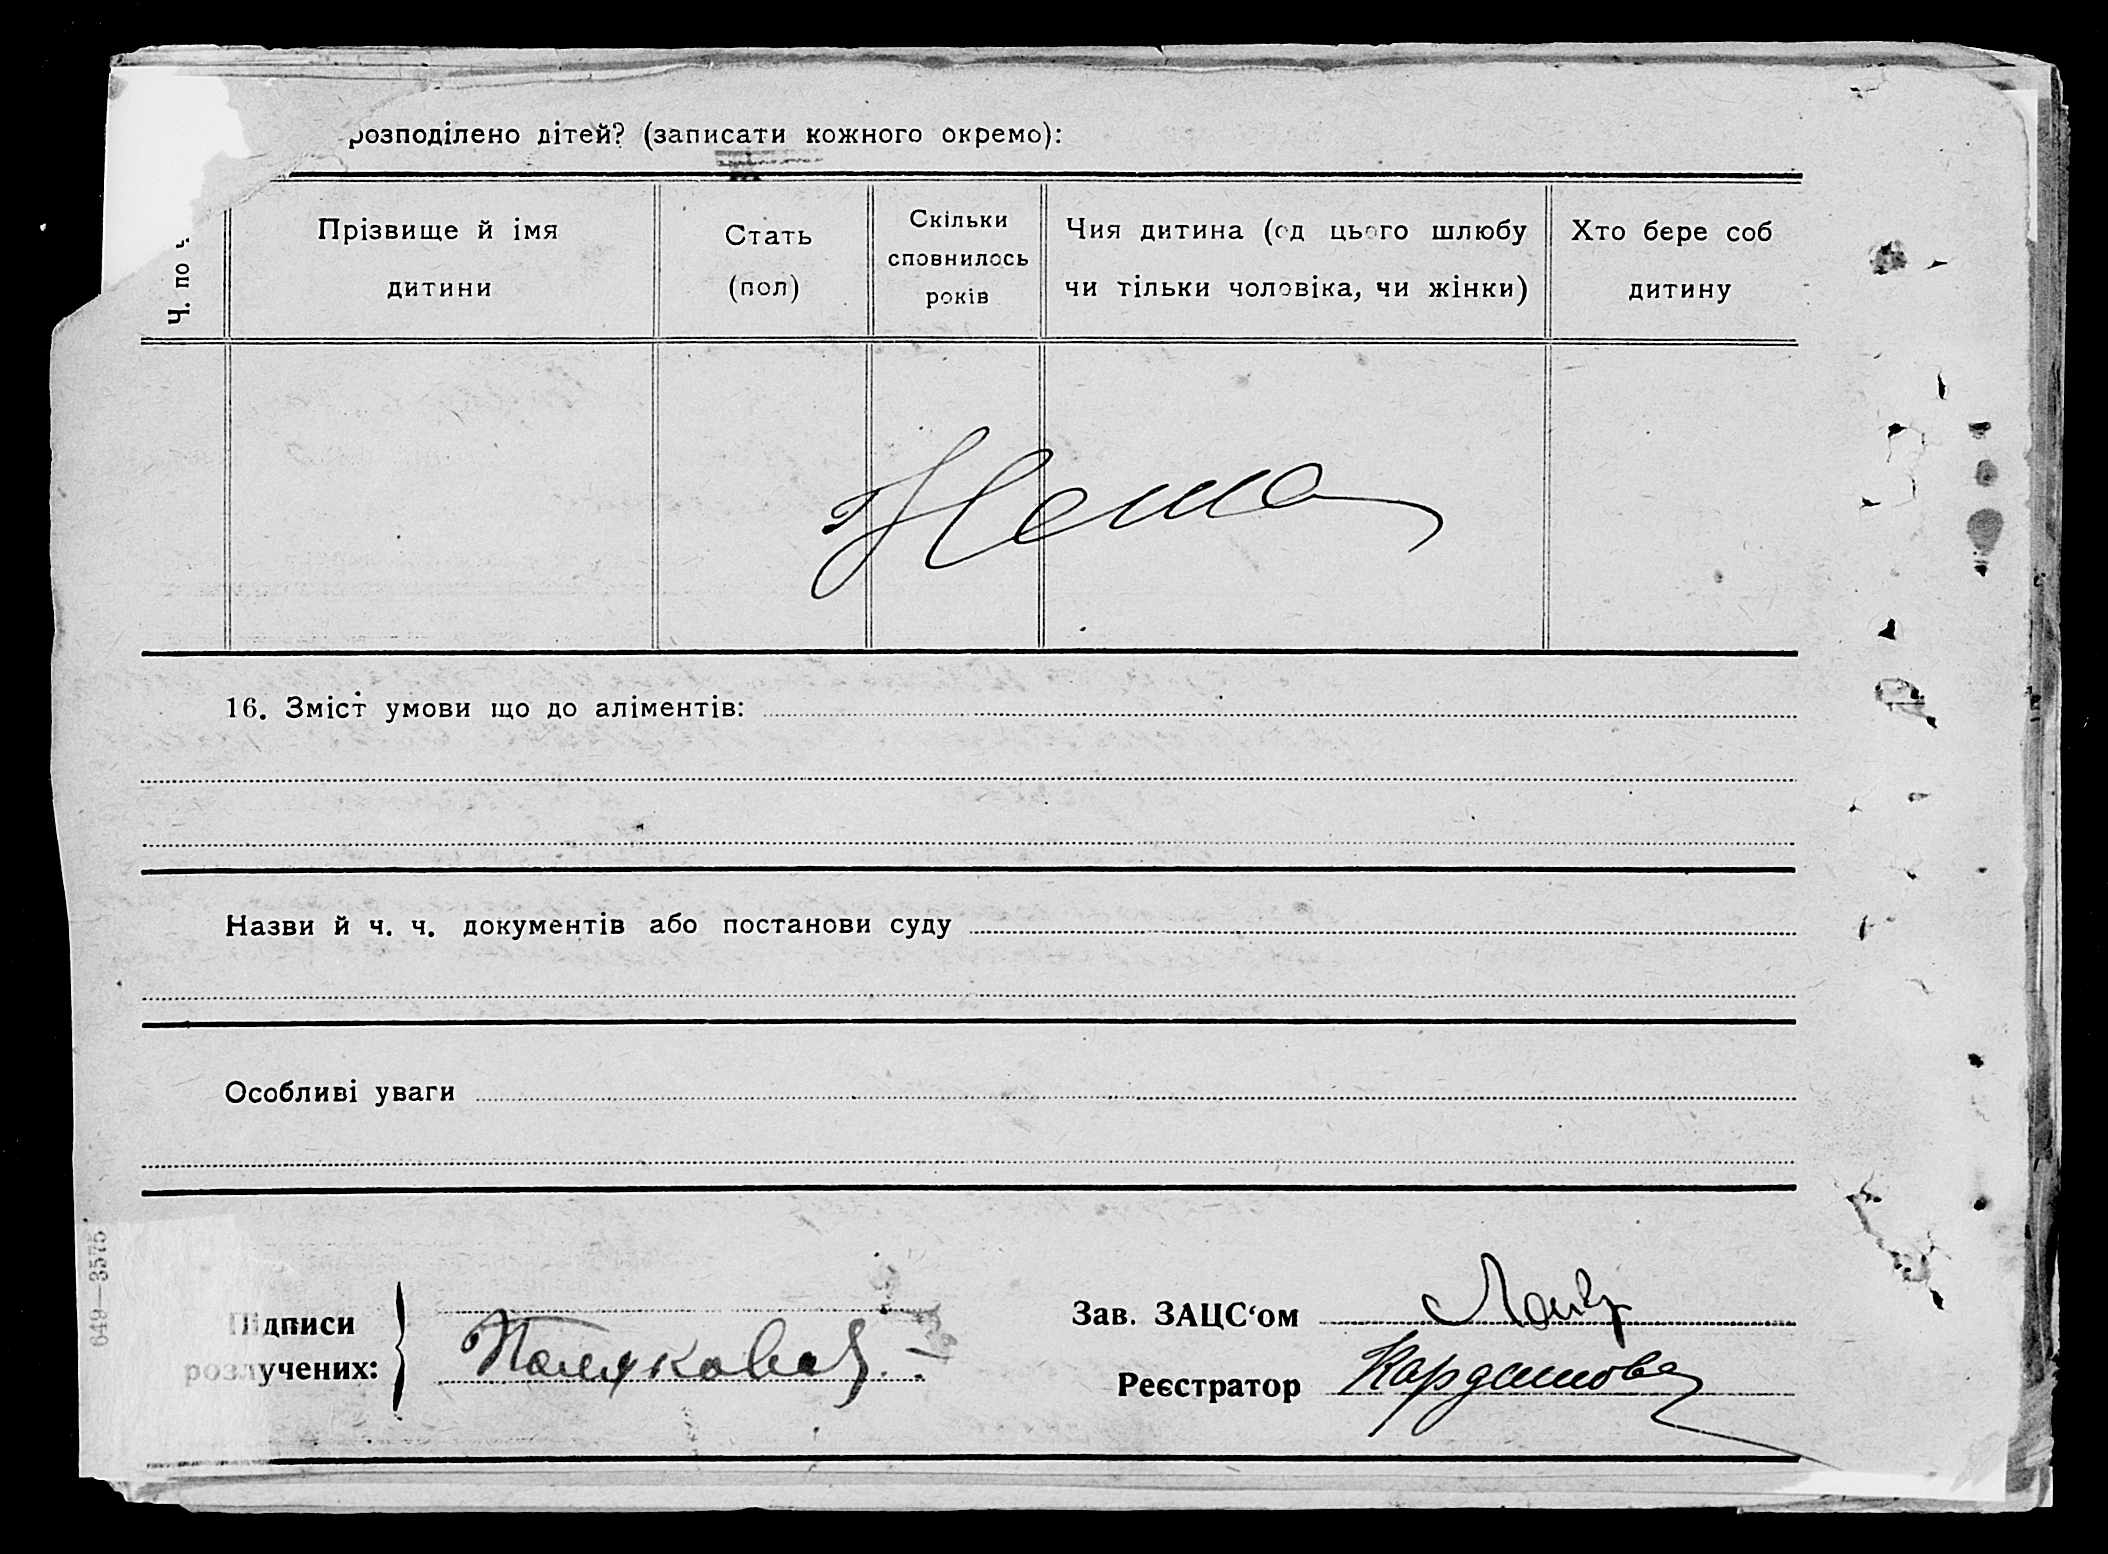 розподілено дітей? (записати кожного окремо):
Ч. по ч.
Прізвище й імя
дитини
Стать
(пол)
Скільки
сповнилось
років
Чия дитина (од цього шлюбу
чи тільки чоловіка, чи жінки)
Хто бере соб
дитину
Нема
16. Зміст умови що до аліментів:
Назви й ч. ч. документів або постанови суду
Особливі уваги
649—3575
Підписи
розлучених:
Зав. ЗАЦС‘ом
Реєстратор
Кардашова